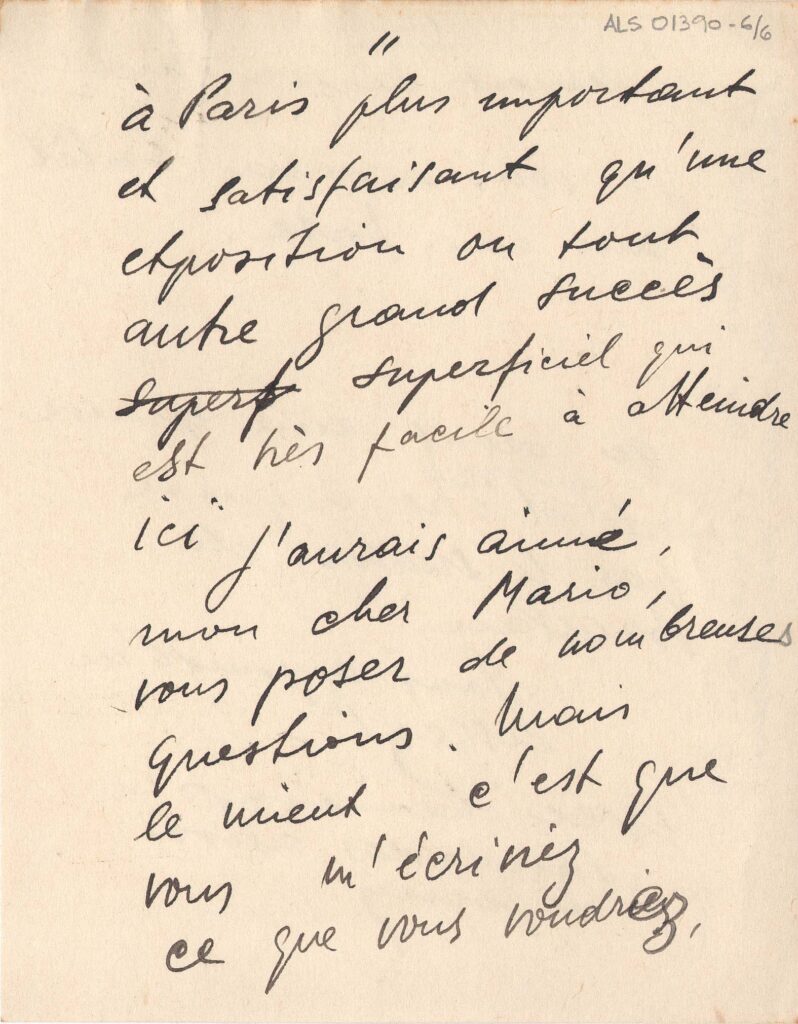 ALS 01390-6/6
"
à Paris plus important
et satisfaisant qu'une
exposition ou tout
autre grand succès
superf superficiel qui
est très facile à atteindre
ici J'aurais aimé,
mon cher Mario,
vous poser de nombreuses
questions. Mais
le mieux c'est que
vous m'écriviez
ce que vous voudriez,